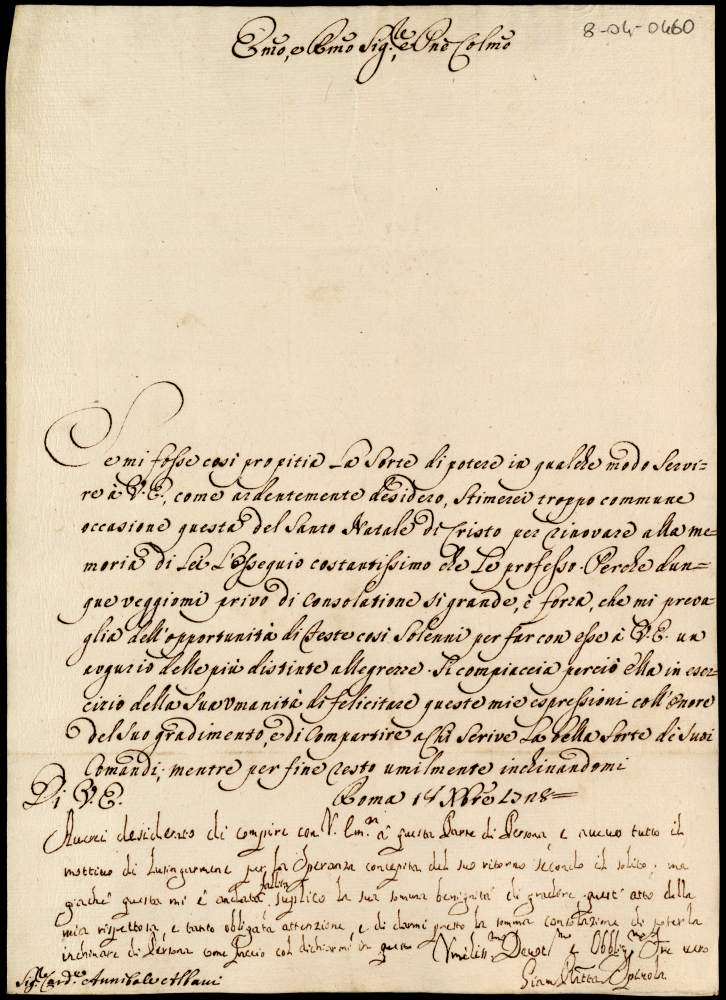 8-04-0460
Emo, e Rmo Sig.re, e Pne Colmo
Se mi fosse così propitia La Sorte di potere in qualche modo Servi=
re à V.E., come ardentemente desidero, Stimerei troppo commune
occasione questa del Santo Natale di Cristo per rinovare alla me=
moria di Lei L'ossequio costantissimo che Le professo. Perche dun=
que veggiomi privo di consolatione si grande, è forza, che mi preva=
glia dell'opportunità di Feste così Solenni per far con esse à V.E. un
augurio delle più distinte allegrezze. Si compiaccia perciò ella in eser=
cizio della Sua umanità di felicitare queste mie espressioni coll'onore
del Suo gradimento, e di Compartire a Chi Scrive La bella Sorte di Suoi
Comandi; mentre per fine resto umilmente inchinandomi
Di V.E. Roma 14 Xbre 1728=
Averei desiderato di compire con V. Em.a a questa Parte di Persona, e avevo tutto il
mottivo di lusingarmene per la Speranza concepita del suo ritorno secondo il solito; ma
giache questa mi è andata fallita, suplico la sua somma benignità di gradire quest'atto della
mia rispettosa, e tanto obligata attenzione, e di darmi presto la somma consolazione di poterla
inchinare di Persona come faccio col dichiarmi in questo Umiliss.mo Devot.mo e Obblig.mo Sre vero
Sig.re Card.le Annibale Albani Gian Batta Spinola